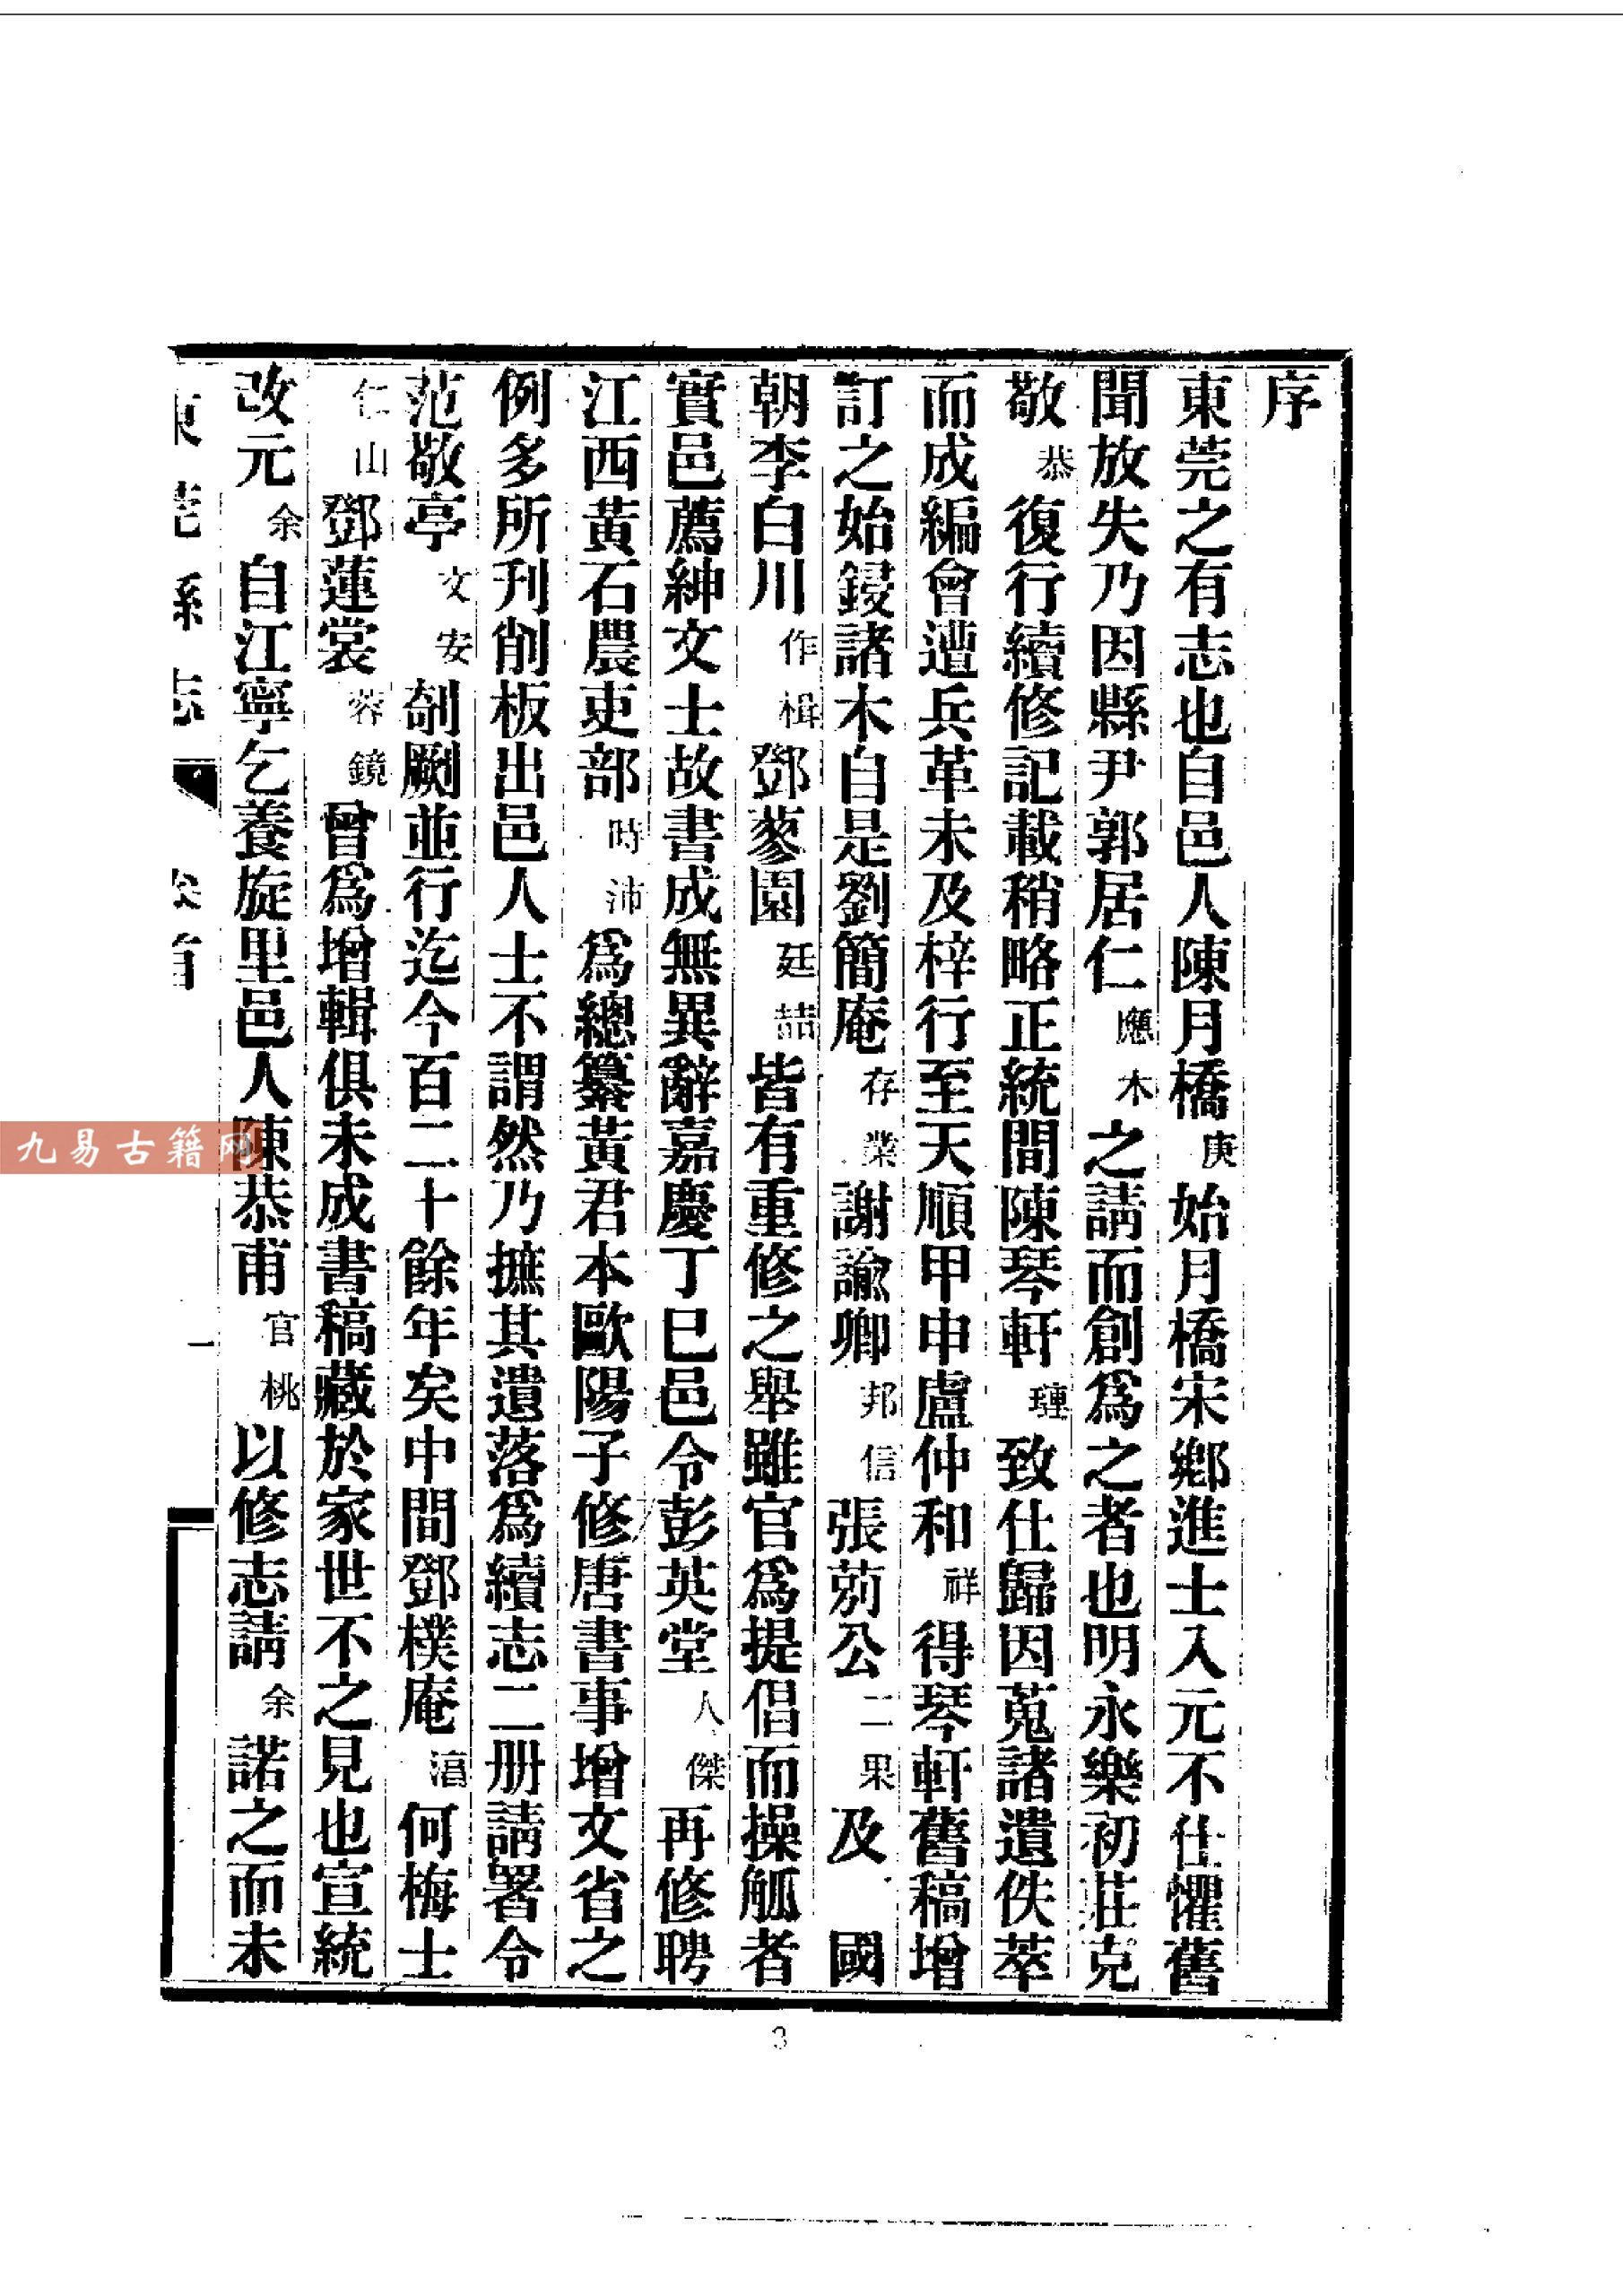 序
東莞之有志也自邑人陳月橋庚始月橋宋鄉進士入元不仕懼舊
聞放失乃因縣尹郭居仁應木之請而創爲之者也明永樂初莊克
敬恭復行續修記載稍略正統間陳琴軒璉致仕歸因蒐諸遺佚萃
而成編會遭兵革未及梓行至天順甲申盧仲和祥得琴軒舊稿增
訂之始鋟諸木自是劉簡庵存業謝諭卿邦信張茢公二果及國
朝李白川作楫鄧蓼園廷喆皆有重修之舉雖官爲提倡而操觚者
實邑薦紳文士故書成無異辭嘉慶丁巳邑令彭英堂人傑再修聘
江西黃石農吏部時沛爲總纂黃君本歐陽子修唐書事增文省之
例多所刋削板出邑人士不謂然乃摭其遺落爲續志二册請署令
范敬亭文安剞劂並行迄今百二十餘年矣中間鄧樸庵淳何梅士
仁山鄧蓮裳蓉鏡曾爲增輯俱未成書稿藏於家世不之見也宣統
改元余自江寧乞養旋里邑人陳恭甫官桃以修志請余諾之而未
東莞縣志 卷首 一
3
九易古籍网